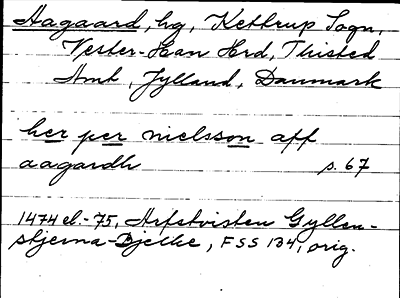 Aagaard, hg, Kettrup Sogn,
Vester-Han Hrd, Thisted
Amt, Jylland, Danmark
her per nielsson aff
aagardh s. 67
1474 el.-75, Arfstvisten Gyllen-
stjerna-Bjelke, FSS 134, orig.